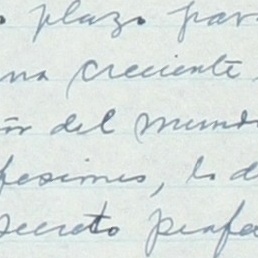 plazo para
una creciente
del mundo
pesimis, lo d
secreto profe